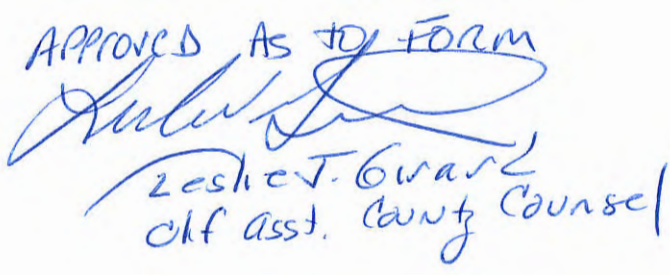 APPROVED AS TO FORM
Leslie J. Girard
Chf Asst. County Counsel